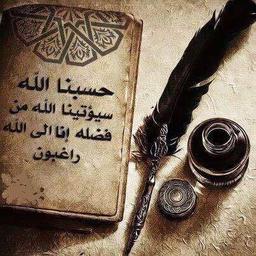 حسبنا الله
سيؤتينا الله من
فضله إنا الى الله
راغبون